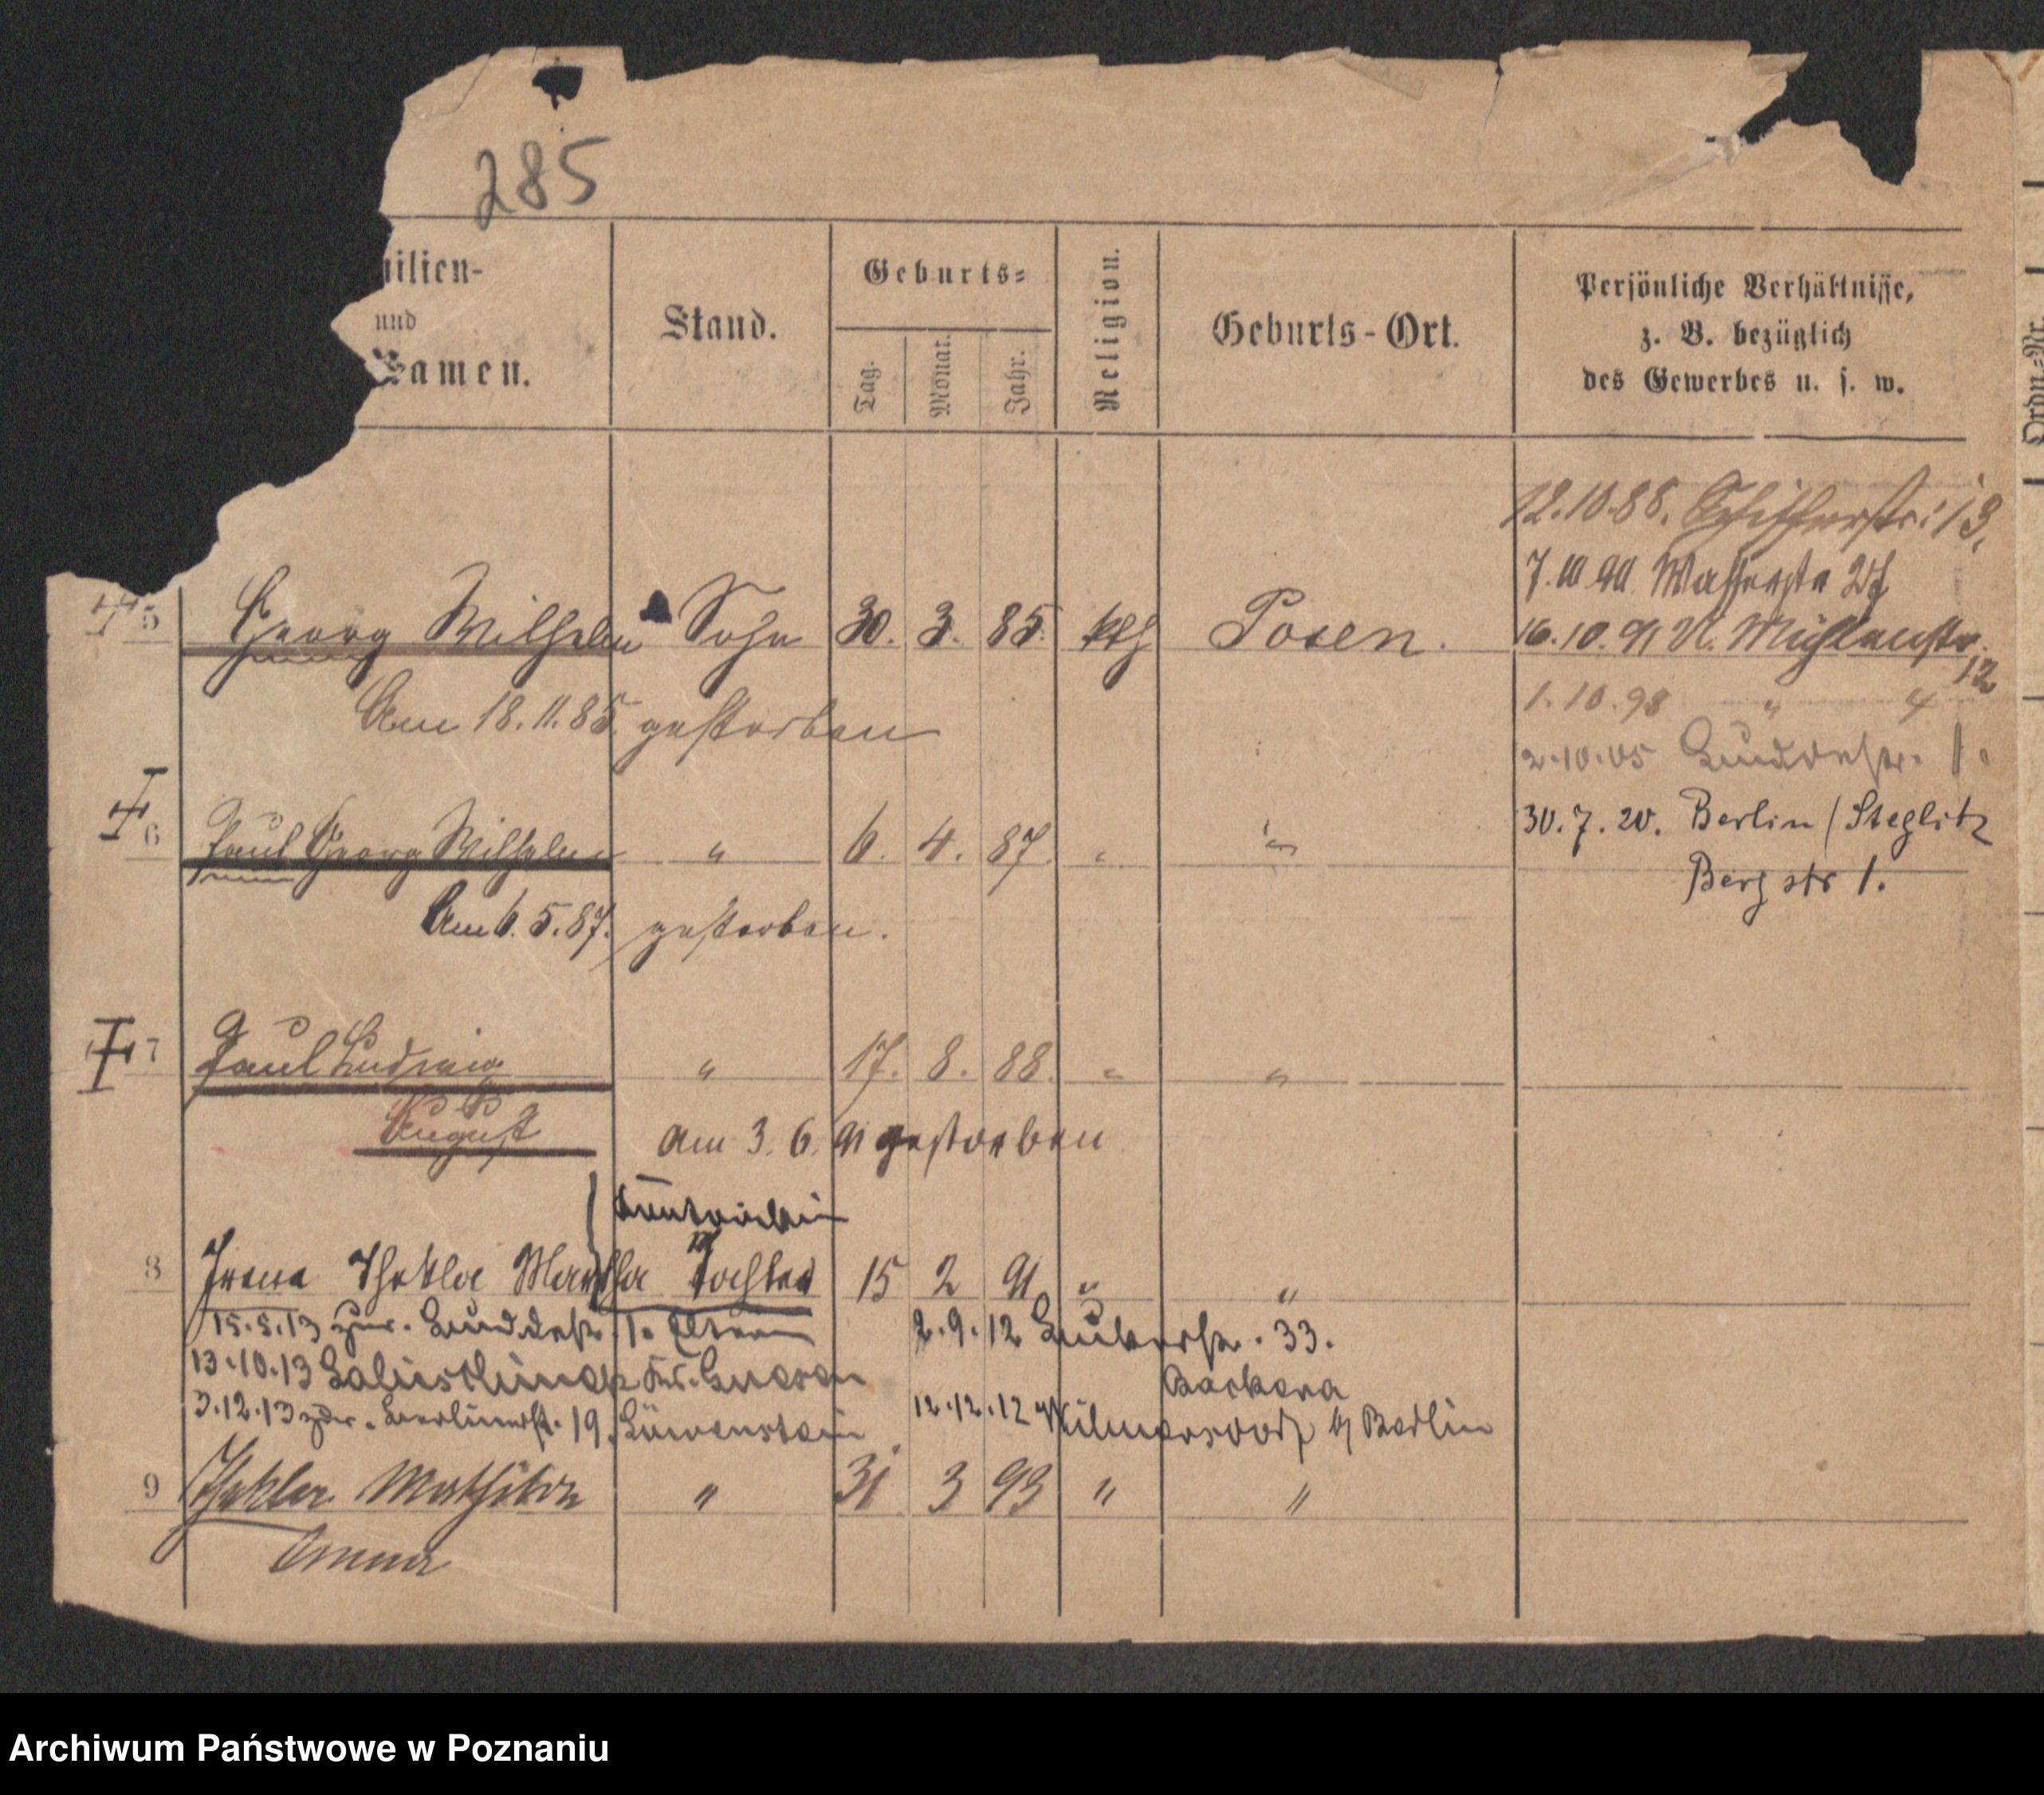 285
Geburts-
Stand.
Religion.
Geburts-Ort.
Persönliche Verhältnisse,
z. B. bezüglich
des Gewerbes u. s. w.
und
Tag.
Monat.
Jahr.
12.10.88. Schifferstr. 13,
7. 10. 90. Wasserstr
16.10.91 K. Mühlenstr. 12
5 Georg Wilhelm Sohn 30. 3. 85. kth Posen.
1.10.98 " 4
Am 18.11.85. gestorben
2.10.05 1.
30.7.20. Berlin/Steglitz
6 Paul Georg Wilhelm " 6. 4. 87. " "
Berg str 1.
Am 6.5.87. gestorben.
7 Paul Ludwig " 17. 8. 88. " "
August am 3. 6. 91 gestorben
8 Irene Thekla Martha Tochter 15 2 91 " "
15.5.13 zur. 1. Eltern 2.9.12 33.
13.10.13
3.12.13 zur. Berlinerstr. 19. Löwenstein 12.12.12 Wilmersdorf b/ Berlin
9 Thekla Mathilde " 31 3 93 " "
Emma
Ordn.-Nr.
Archiwum Państwowe w Poznaniu